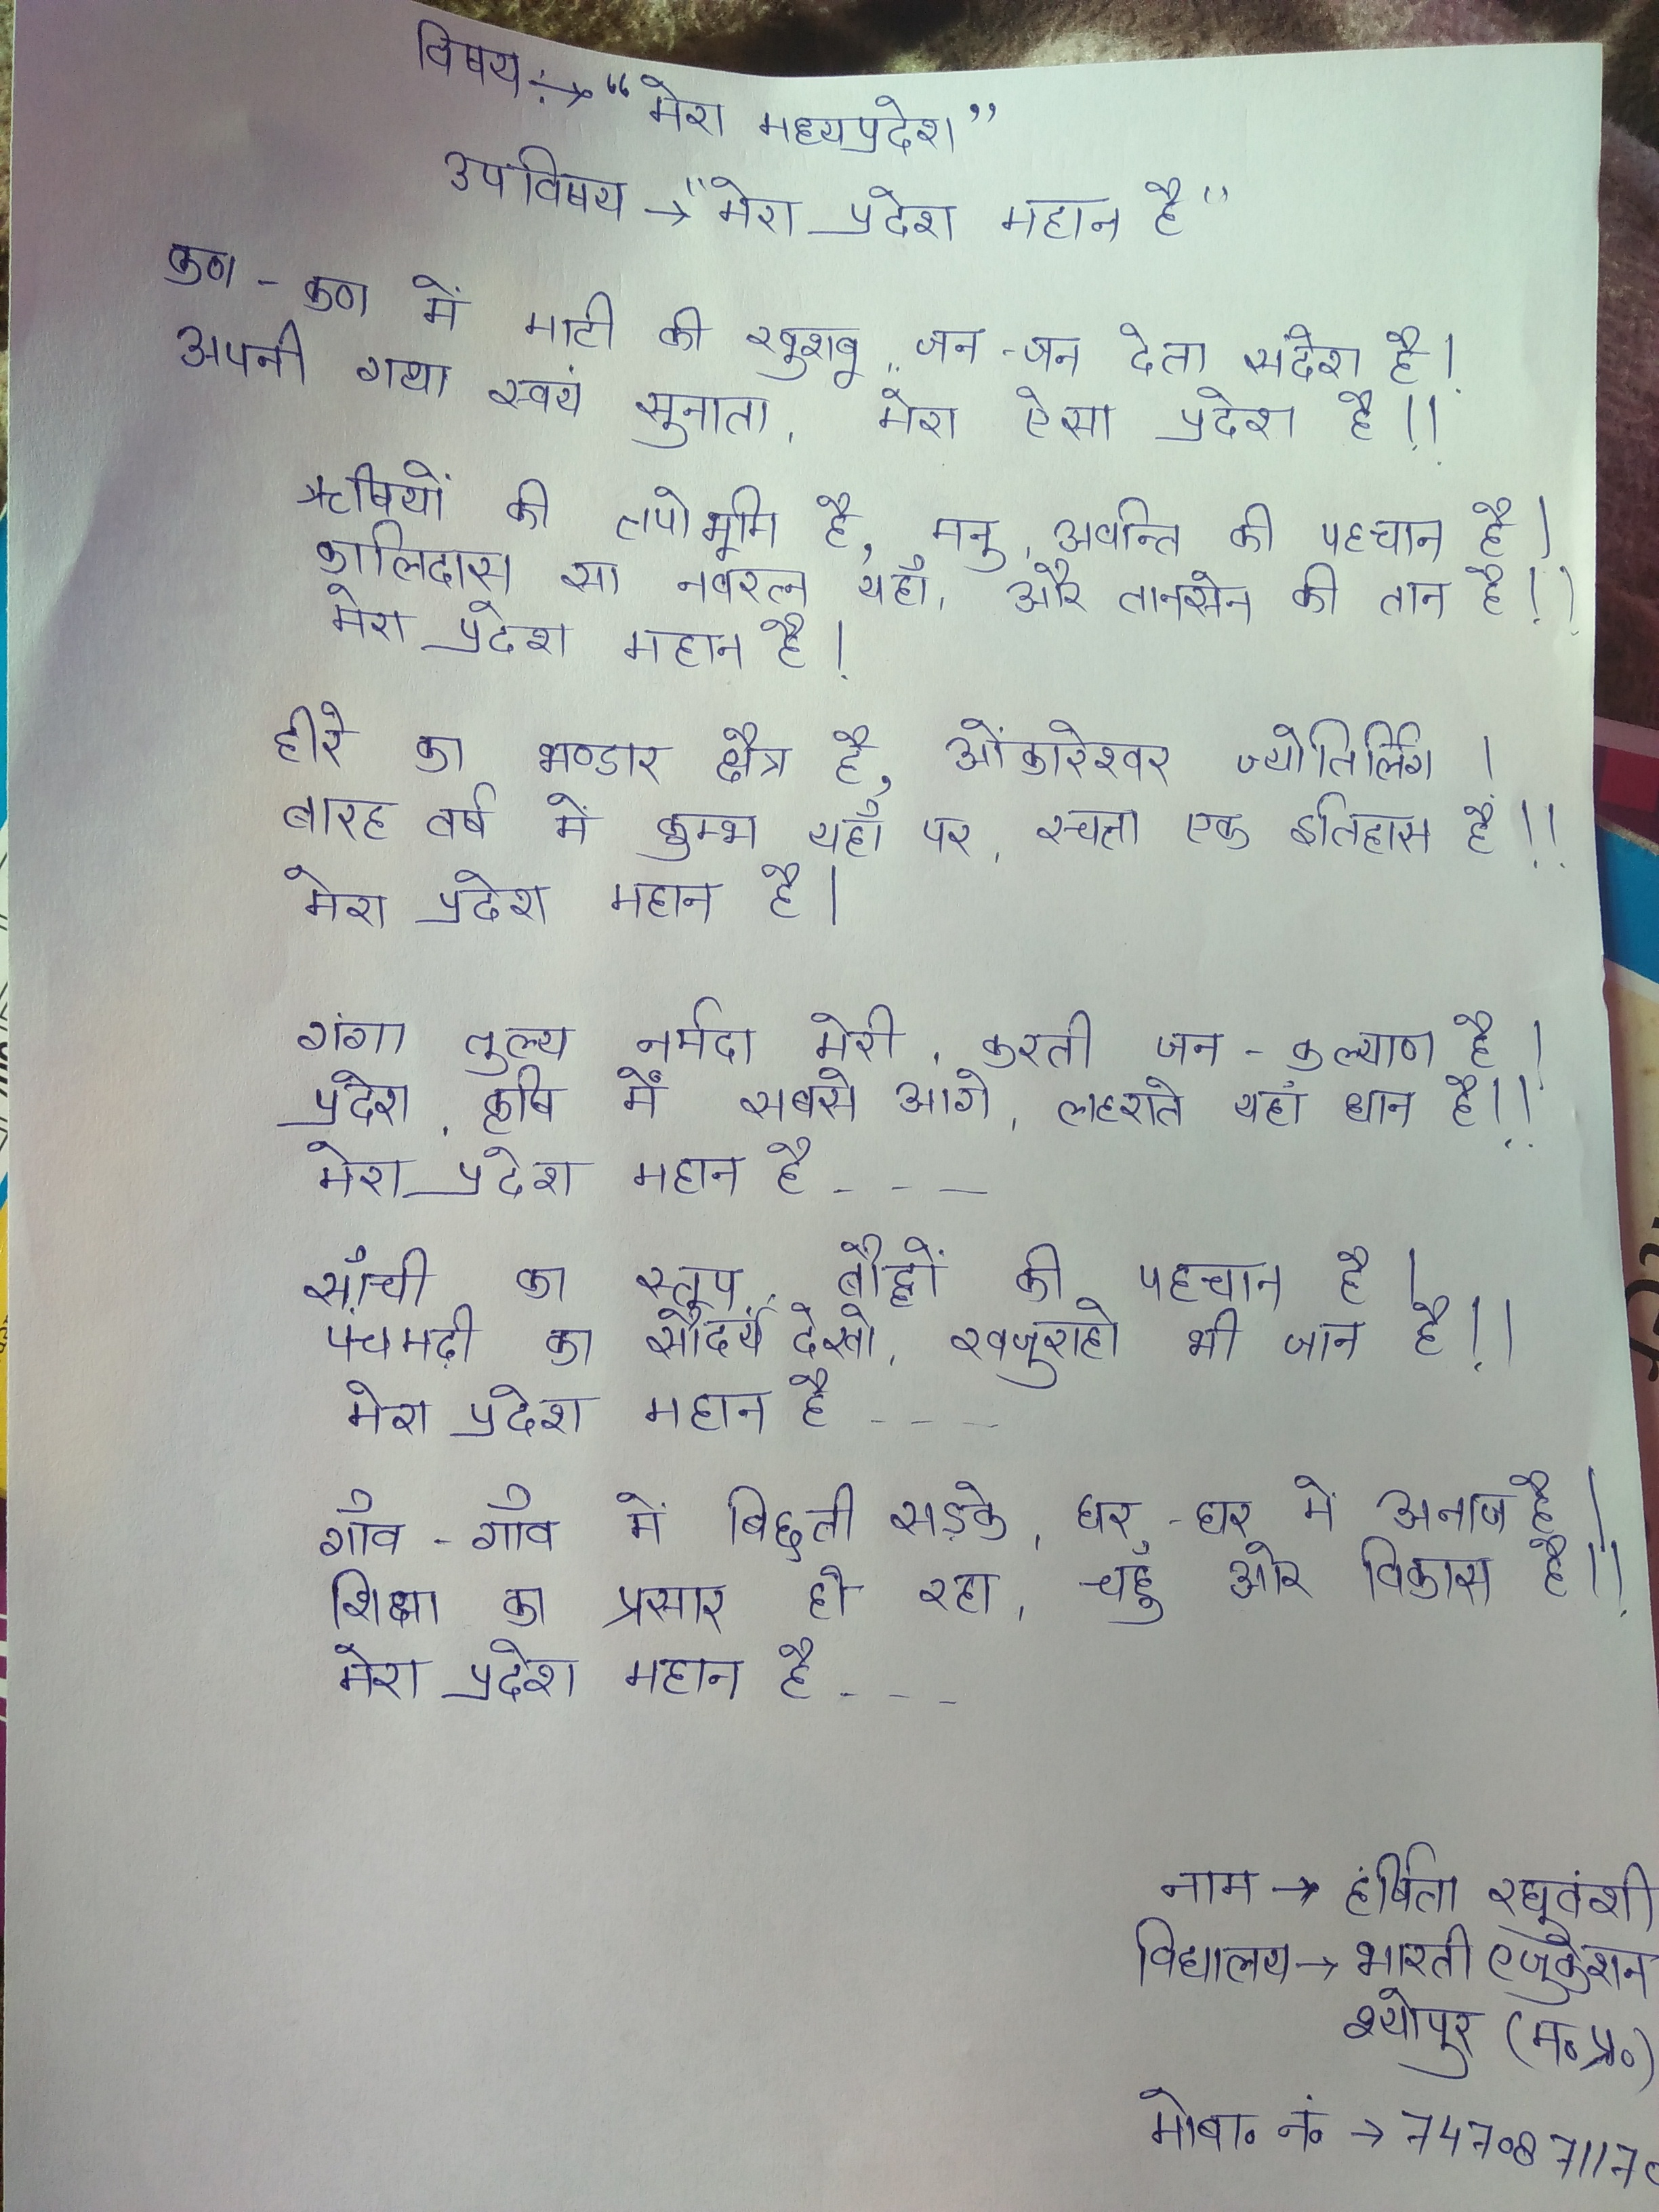 विषय :→ “मेरा मध्यप्रदेश”
उपविषय → "मेरा प्रदेश महान है"
कण - कण में माटी की खुशबू, जन - जन देता संदेश है।
अपनी गाथा स्वयं सुनाता, मेरा ऐसा प्रदेश है।।
ऋषियों की तपोभूमि है, मनु, अवन्ति की पहचान है।
कालिदास सा नवरत्न यहाँ, और तानसेन की तान है।।
मेरा प्रदेश महान है।
हीरे का भण्डार क्षैत्र है, ओंकारेश्वर ज्योतिर्लिंग ।
बारह वर्ष में कुम्भ यहाँ पर, रचता एक इतिहास है।।
मेरा प्रदेश महान है।
गंगा तुल्य नर्मदा मेरी, करती जन - कल्याण है।
प्रदेश, कृषि में सबसे आगे, लहराते यहाँ धान है।।
मेरा प्रदेश महान है - - -
साँची का स्तूप, बौद्धों की पहचान है।
पचमढ़ी का सौंदर्य देखो, खजुराहो भी जान है।।
मेरा प्रदेश महान है - - -
गाँव - गाँव में बिछती सड़के, घर - घर में अनाज है।
शिक्षा का प्रसार हो रहा, चहुँ ओर विकास है।।
मेरा प्रदेश महान है - - -
नाम → हंर्षिता रघुवंशी
विद्यालय → भारती एजुकेशन
श्योपुर (म॰प्र॰)
मोबा॰ नं॰ →